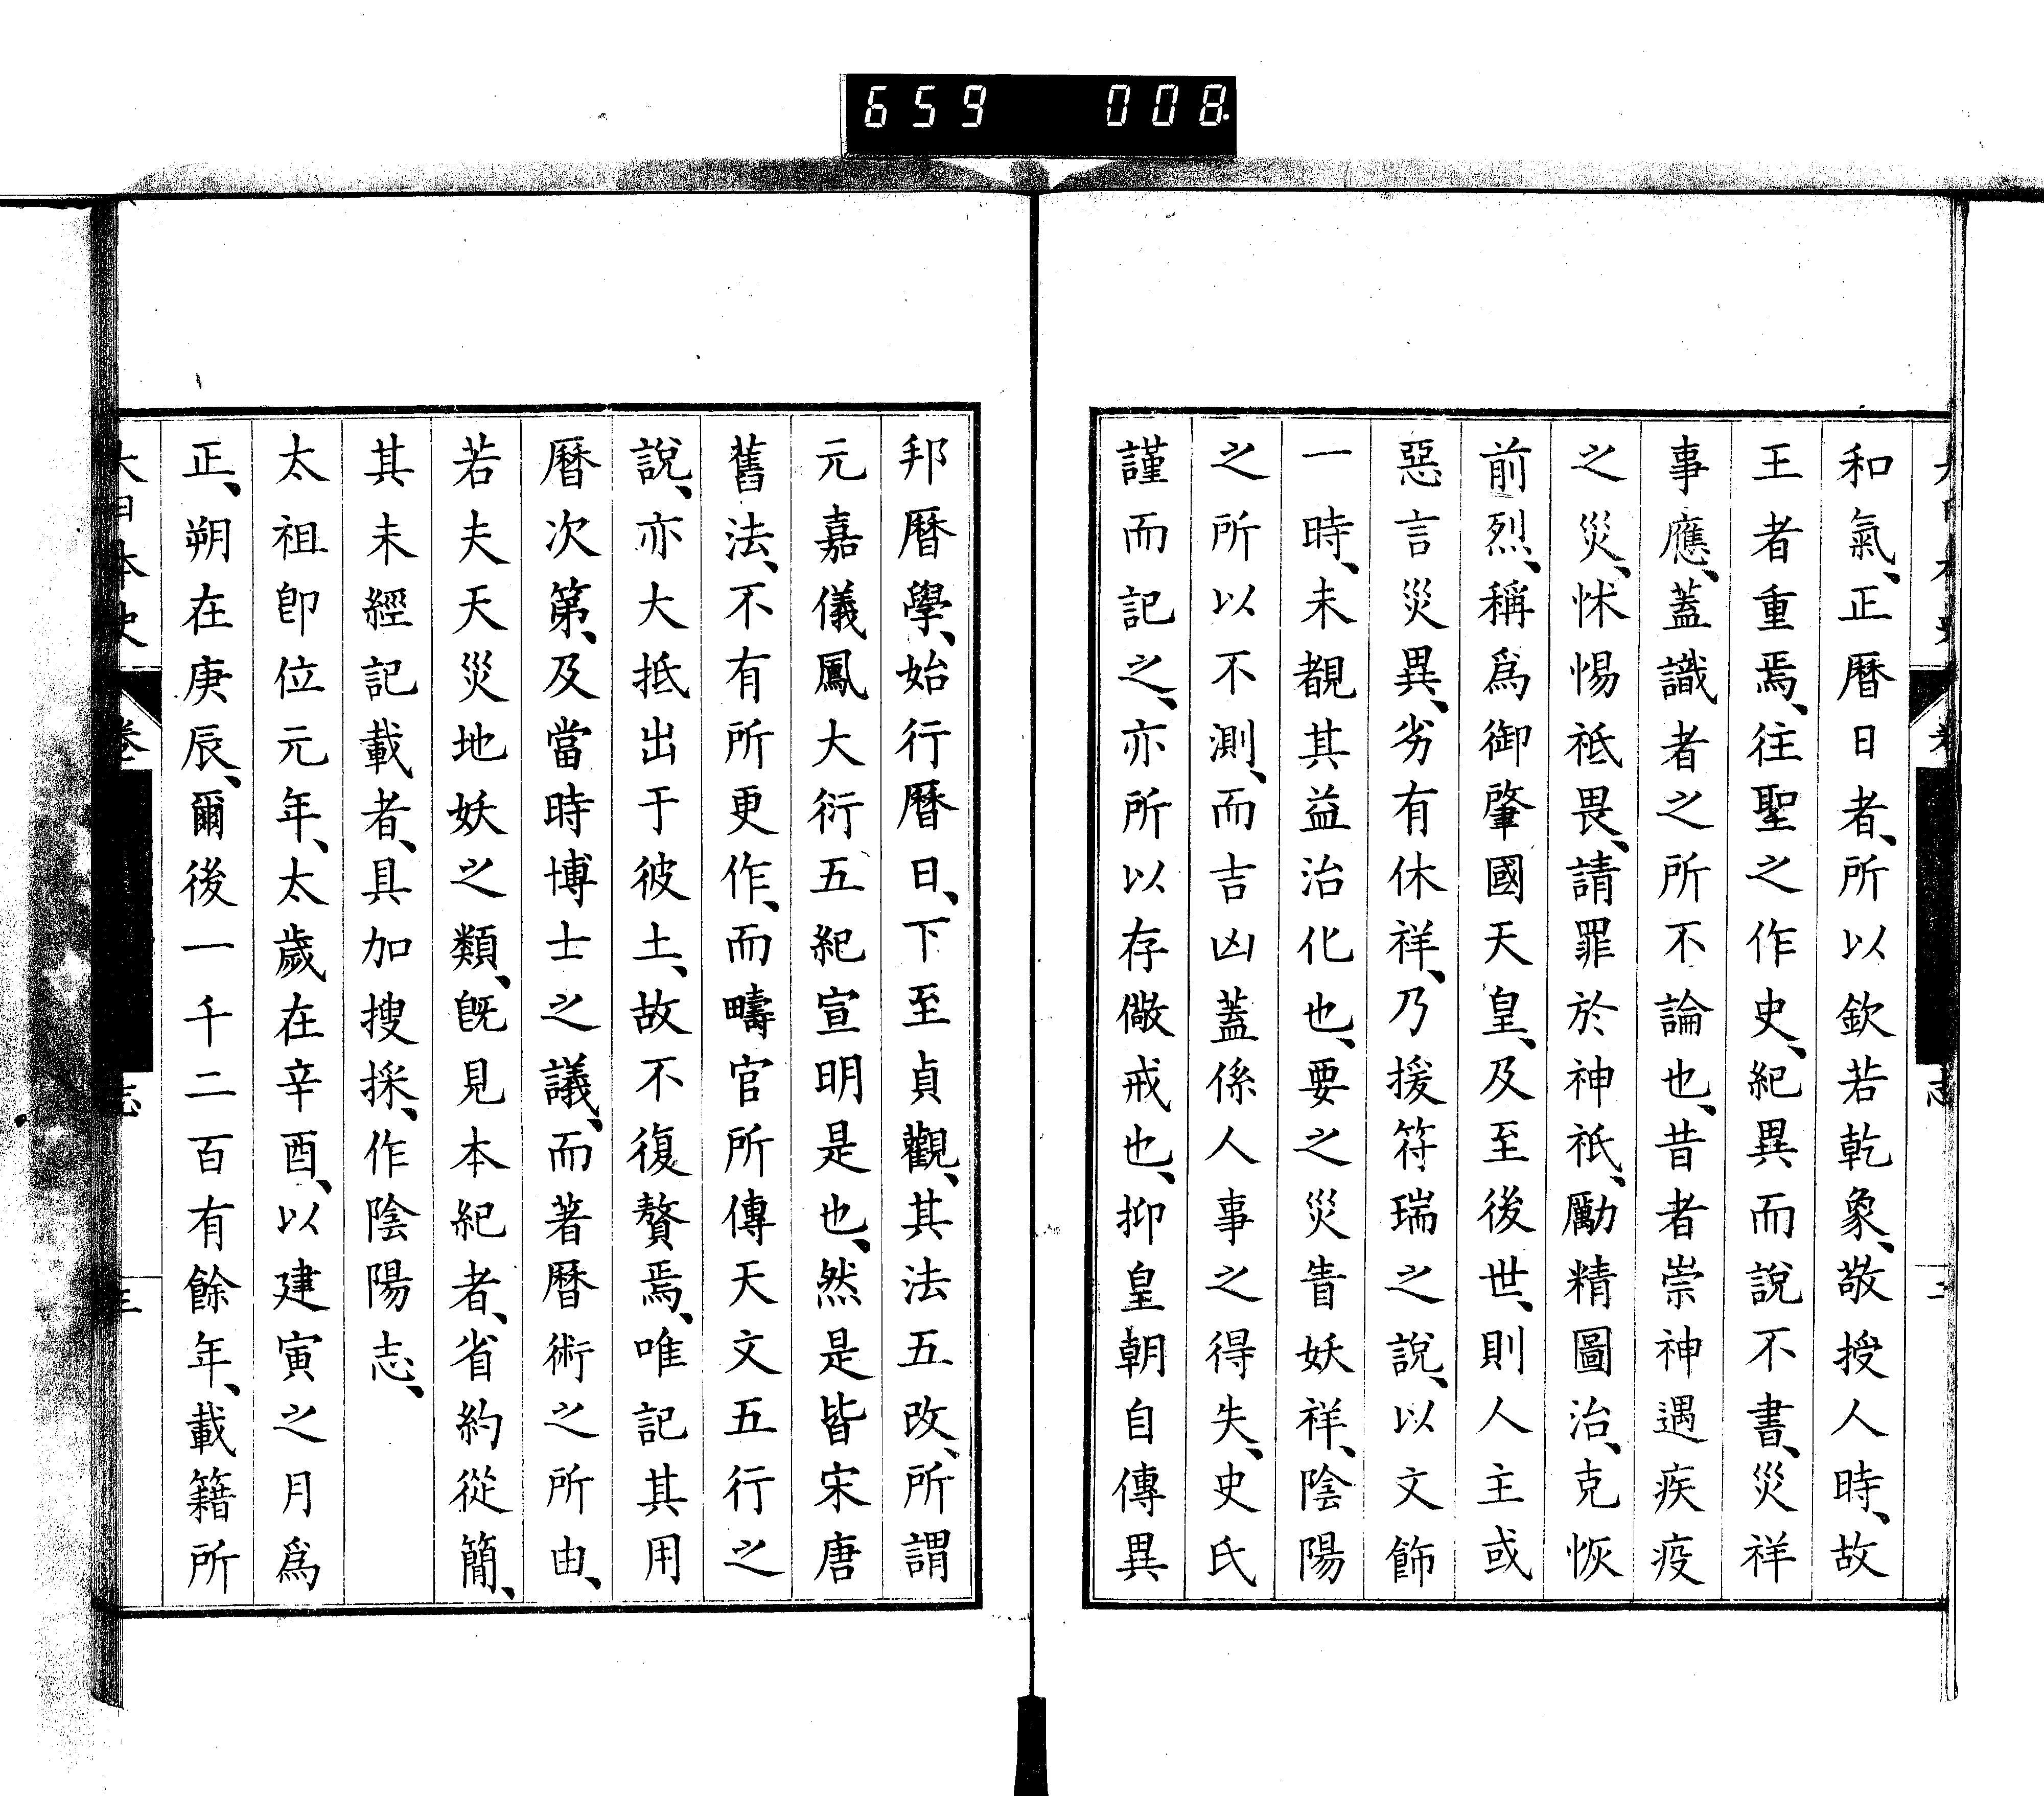 659 008
和氣、正曆日者、所以欽若乾象、敬授人時、故
王者重焉、往聖之作史、紀異而說不書、災祥
事應、蓋識者之所不論也、昔者崇神遇疾疫
之災、怵惕祗畏、請罪於神祇、勵精圖治、克恢
前烈、稱爲御肇國天皇、及至後世、則人主或
惡言災異、劣有休祥、乃援符瑞之說、以文飾
一時、未覩其益治化也、要之災眚妖祥、陰陽
之所以不測、而吉凶蓋係人事之得失、史氏
謹而記之、亦所以存儆戒也、抑皇朝自傳異
邦曆學、始行曆日、下至貞觀、其法五改、所謂
元嘉儀鳳大衍五紀宣明是也、然是皆宋唐
舊法、不有所更作、而疇官所傳天文五行之
說、亦大抵出于彼土、故不復贅焉、唯記其用
曆次第、及當時博士之議、而著曆術之所由、
若夫天災地妖之類、旣見本紀者、省約從簡、
其未經記載者、具加搜採、作陰陽志、
太祖卽位元年、太歲在辛酉、以建寅之月爲
正、朔在庚辰、爾後一千二百有餘年、載籍所
大日本史 卷 志 三